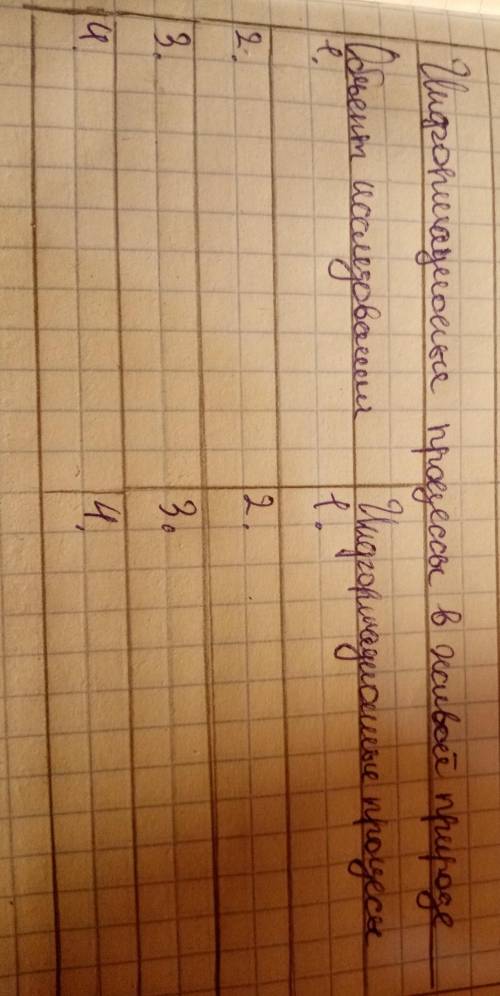 Информационые процессы в живой природе
Объект исследования Информационные процесы
1. 1.
2. 2.
3. 3.
4. 4.